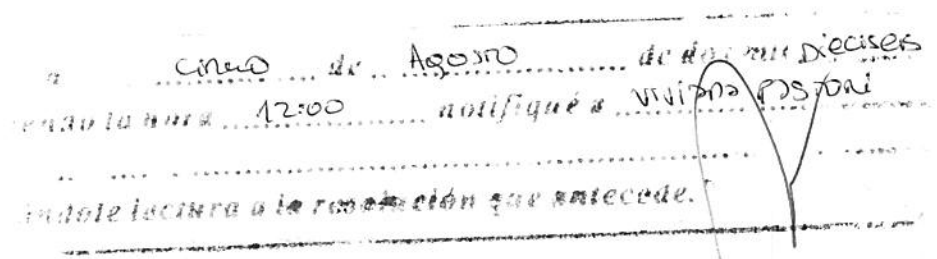 a cinco de Agosto de dos mil Dieciseis
la hora 12:00 notifiqué a Viviana Pastori
lectura a la resolución que antecede.